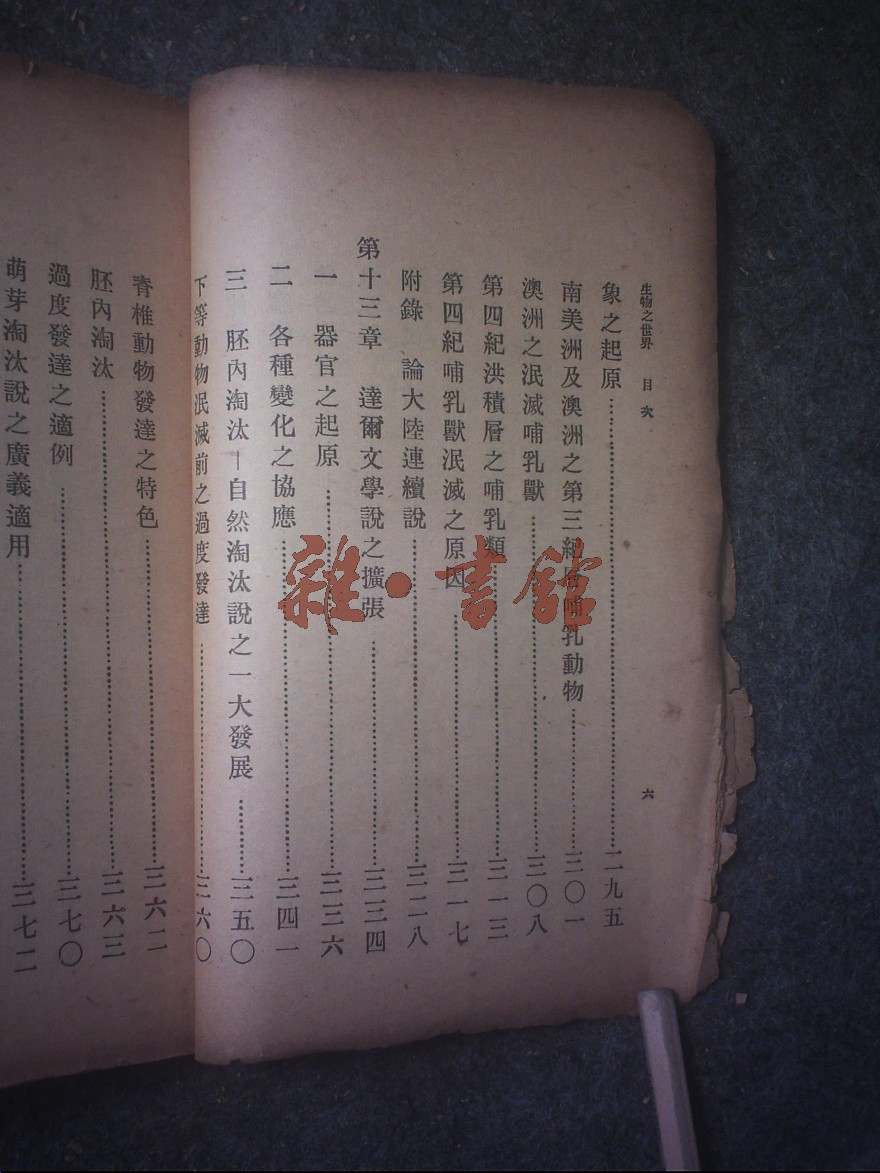 生物之世界 目次 六
象之起原……二九五
南美洲及澳洲之第三紀層哺乳動物……三〇一
澳洲之泯滅哺乳獸……三〇八
第四紀洪積層之哺乳類……三一三
第四紀哺乳獸泯滅之原因……三一七
附錄 論大陸連續說……三二八
第十三章 達爾文學說之擴張……三三四
一 器官之起原……三三六
二 各種變化之協應……三四一
三 胚內淘汰—自然淘汰說之一大發展……三五〇
下等動物泯滅前之過度發達……三六〇
脊椎動物發達之特色……三六二
胚內淘汰……三六三
過度發達之適例……三七〇
萌芽淘汰說之廣義適用……三七二
雜·書館